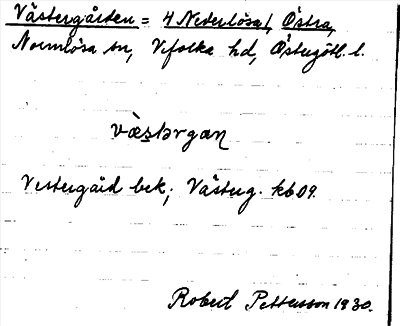 Västergården = 4 Nederlösa/, Östra,
Normlösa sn, Vifolka hd, Östergötl. l.
væ̀stərgaɳ
Vestergård bek; Västerg. kb 09.
Robert Pettersson 1930.